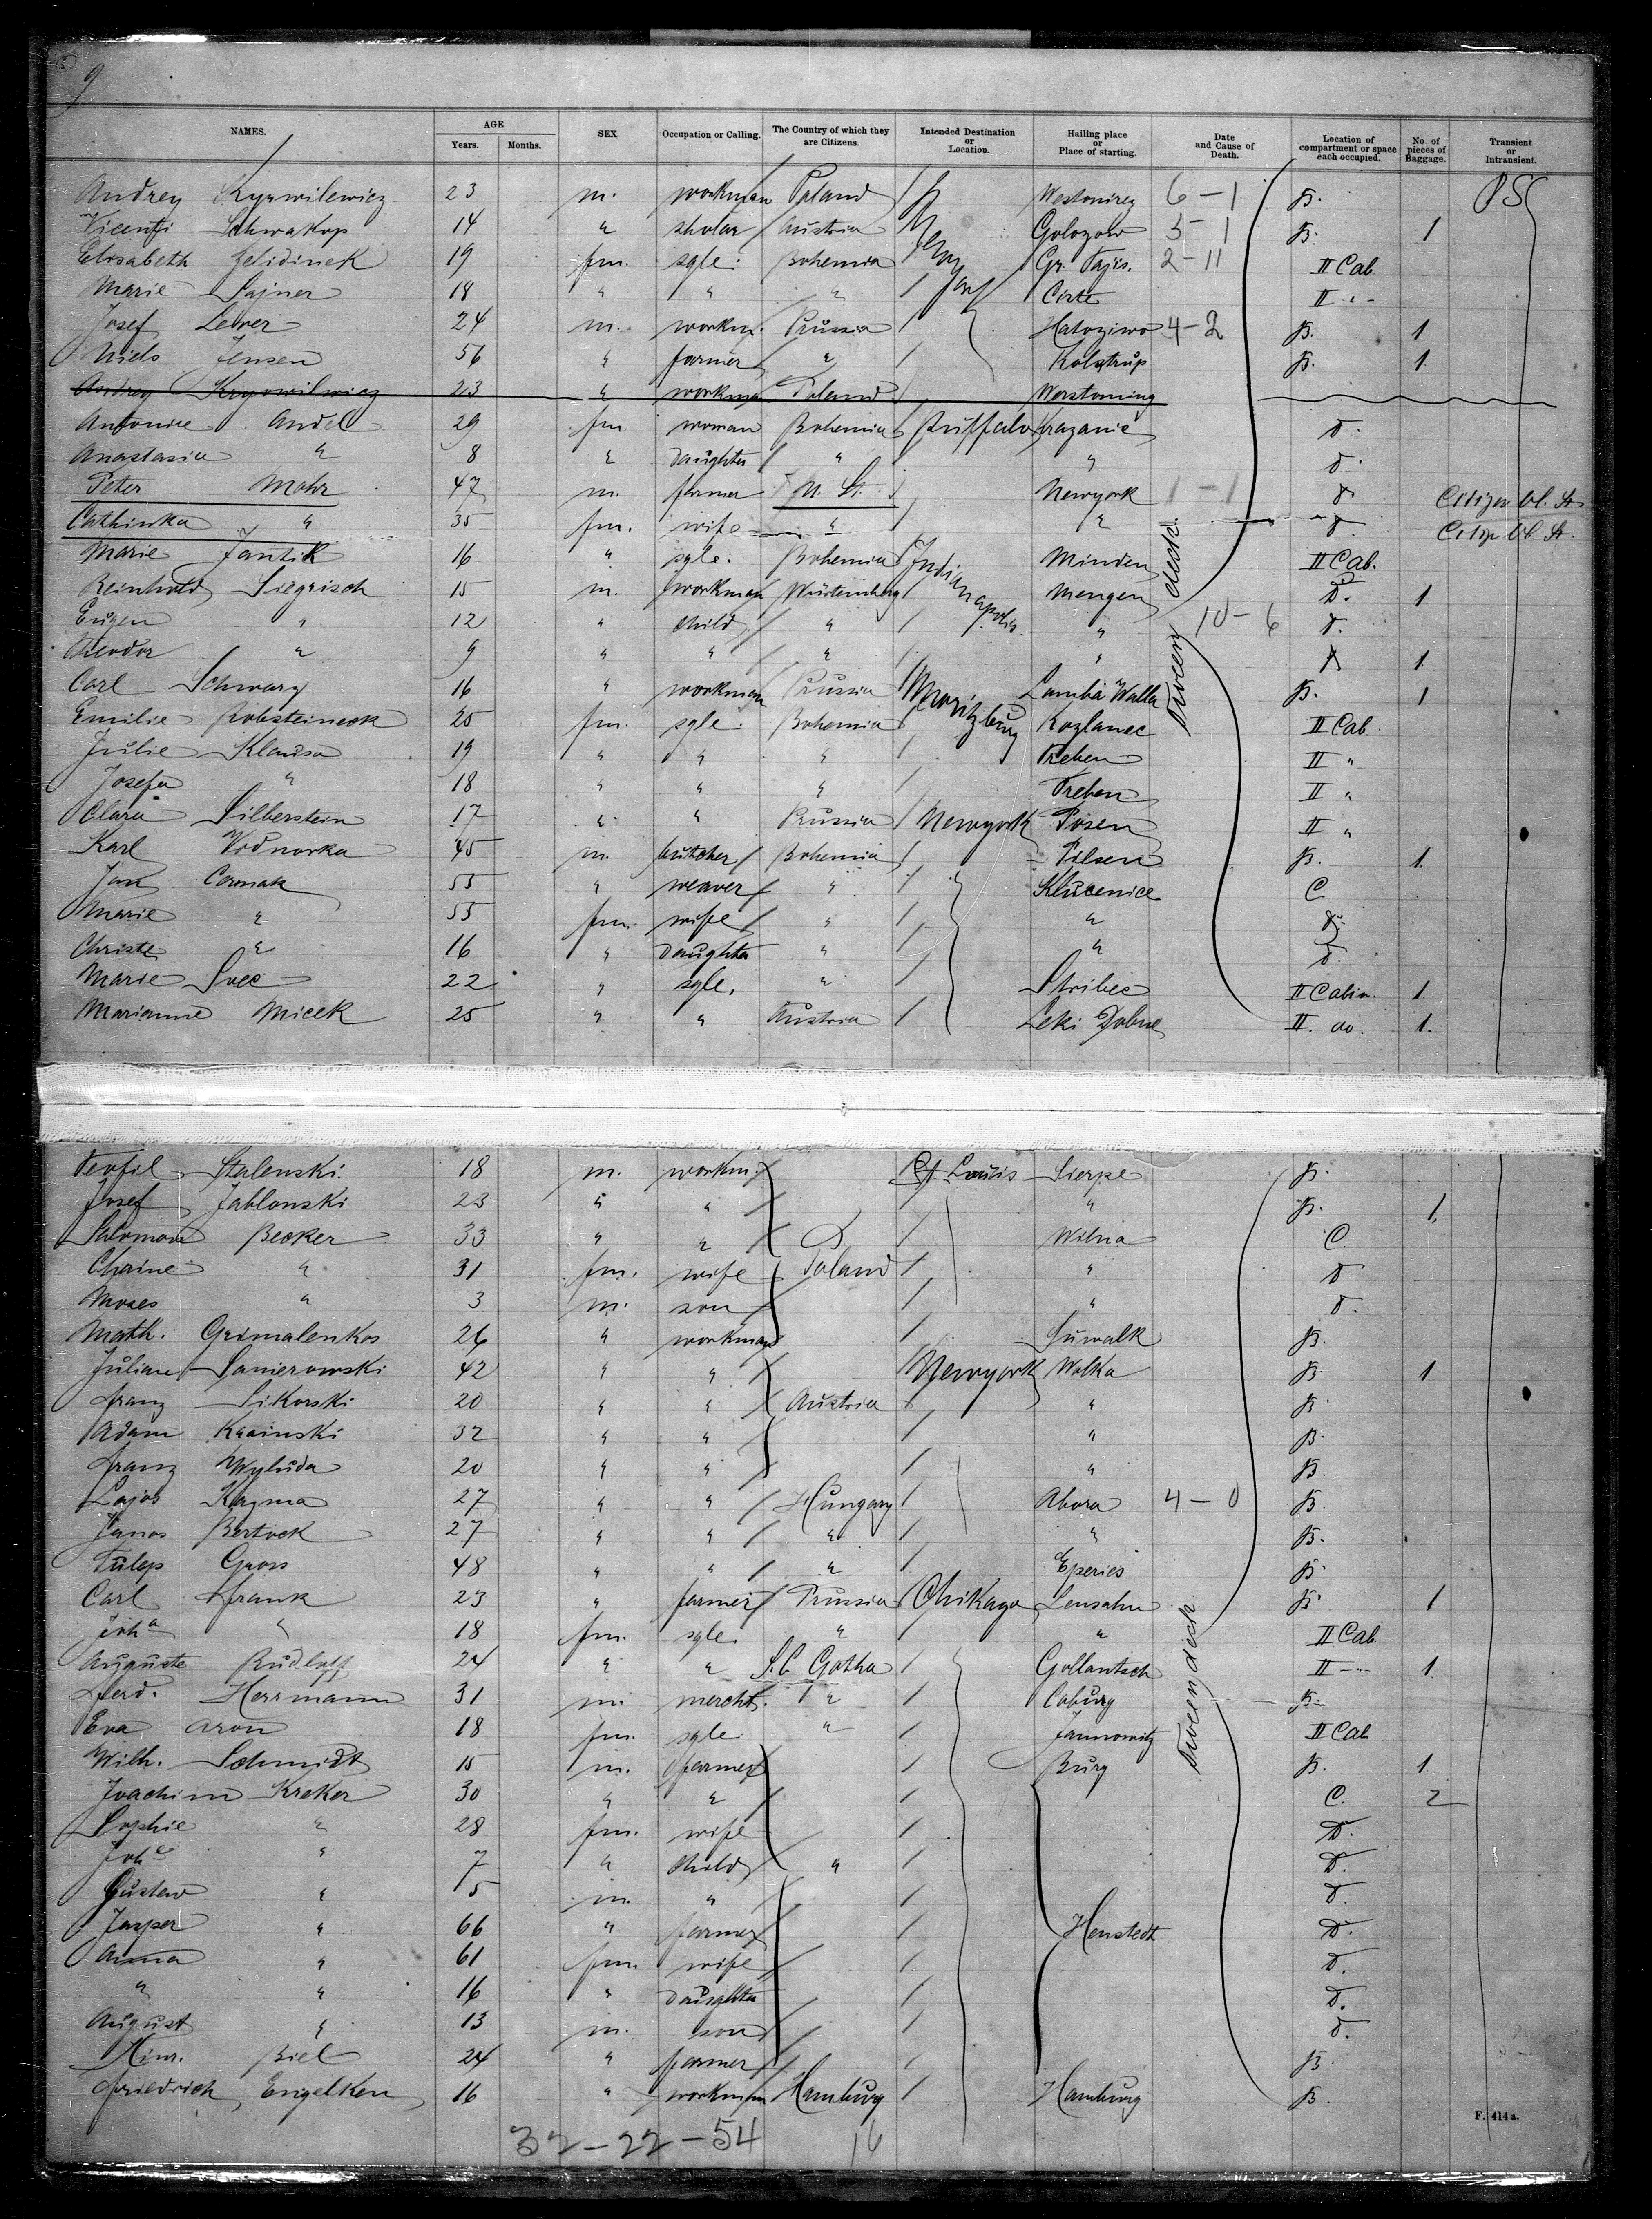 9
NAMES. AGE Years. Months. SEX Occupation or Calling. The Country of which they are Citizens. Intended Destination or Location. Hailing place or Place of starting. Date and Cause of Death. Location of compartment or space each occupied. No. of pieces of Baggage. Transient or Intransient.
Andrey 23 m. workman Poland 6-1 B. PS
Schwakop 14 " sholar Austria 5-1 B. 1
Elisabeth 19 fm. sgle. Bohemia 2-11 II Cab
Marie Sajner 18 " " " II "
Josef 24 m. workm. Prussia 4-2 B. 1
Niels Jensen 56 " farmer " B. 1
Andrey 23 " workman Poland
Andel 29 fm woman Bohemia Buffalo D.
Anastasia " 8 " daughter " " D.
Peter Mohr 47 m. farmer U. St. Newyork 1-1 D Citizen U. St.
Cathinka " 35 fm. wife " " D. Citizen U St.
Marie Jantik 16 " sgle. Bohemia Indianapolis Minden II Cab.
Reinhold Siegrisch 15 m. workman Würtemberg Mengen D. 1
Eugen " 12 " child " " 10-6 D.
Theodor " 9 " " " " D 1
Carl Schwarz 16 " workman Prussia Lamba Walla B. 1
Emilie 25 fm. sgle. Bohemia Kozlanec II Cab.
Julie 19 " " " Treben II "
Josefa " 18 " " " Treben II "
Clara Silberstein 17 " " Prussia Newyork Posen II "
Karl Vodnarka 45 m. butcher Bohemia Pilsen B. 1.
Jan Cermak 55 " weaver " Klucenice C
Marie " 55 fm. wife " " D.
Christe " 16 " daughter " " D.
Marie Svec 22 " sgle. " Stribec II Cabin. 1.
Marianne Micek 25 " " Austria Leki Dolne II. do. 1.
Tween deck
Teofil Stalenski. 18 m. workm. St. Louis Sierpe B.
Josef Jablonski 23 " " " B. 1.
Salomon Becker 33 " " Wilna C.
" 31 fm. wife Poland " D
Moses " 3 m. son " D.
Math. Grimalenkos 26 " workman Suwalk B.
Julian 42 " " Newyork Wolka B. 1
Franz Sikorski 20 " " Austria " B.
Adam Krainski 32 " " " B.
Franz Wyluda 20 " " " B.
Lajos Kazma 27 " " Hungary Abora 4-0 B.
Janos Bertok 27 " " " " B.
Fülep Gross 48 " " " Eperies B.
Carl Frank 23 " farmer Prussia Chikago Lensahn B. 1
Joh^a " 18 fm. sgle. " " II Cab
Auguste Rudloff 24 " " S. C Gotha Gollantsch II " 1.
Ferd. Herrmann 31 m. mercht. " Coburg B.
Eva Aron 18 fm. sgle " Jannowitz II Cab
Wilh. Schmidt 15 m. farmer Burg B. 1
Joachim Kreker 30 " " C. 2
Sophie " 28 fm. wife D.
Joh^e " 7 " child " D.
Gustav " 5 m. " D.
Jasper " 66 " farmer Henstedt D.
Anna " 61 fm. wife D.
" " 16 " daughter D.
August " 13 m. son D.
Hinr. Biel 24 " farmer B.
Friedrich Engelken 16 " workman Hamburg Hamburg B.
Tween deck
32-22-54
F. 414 a.